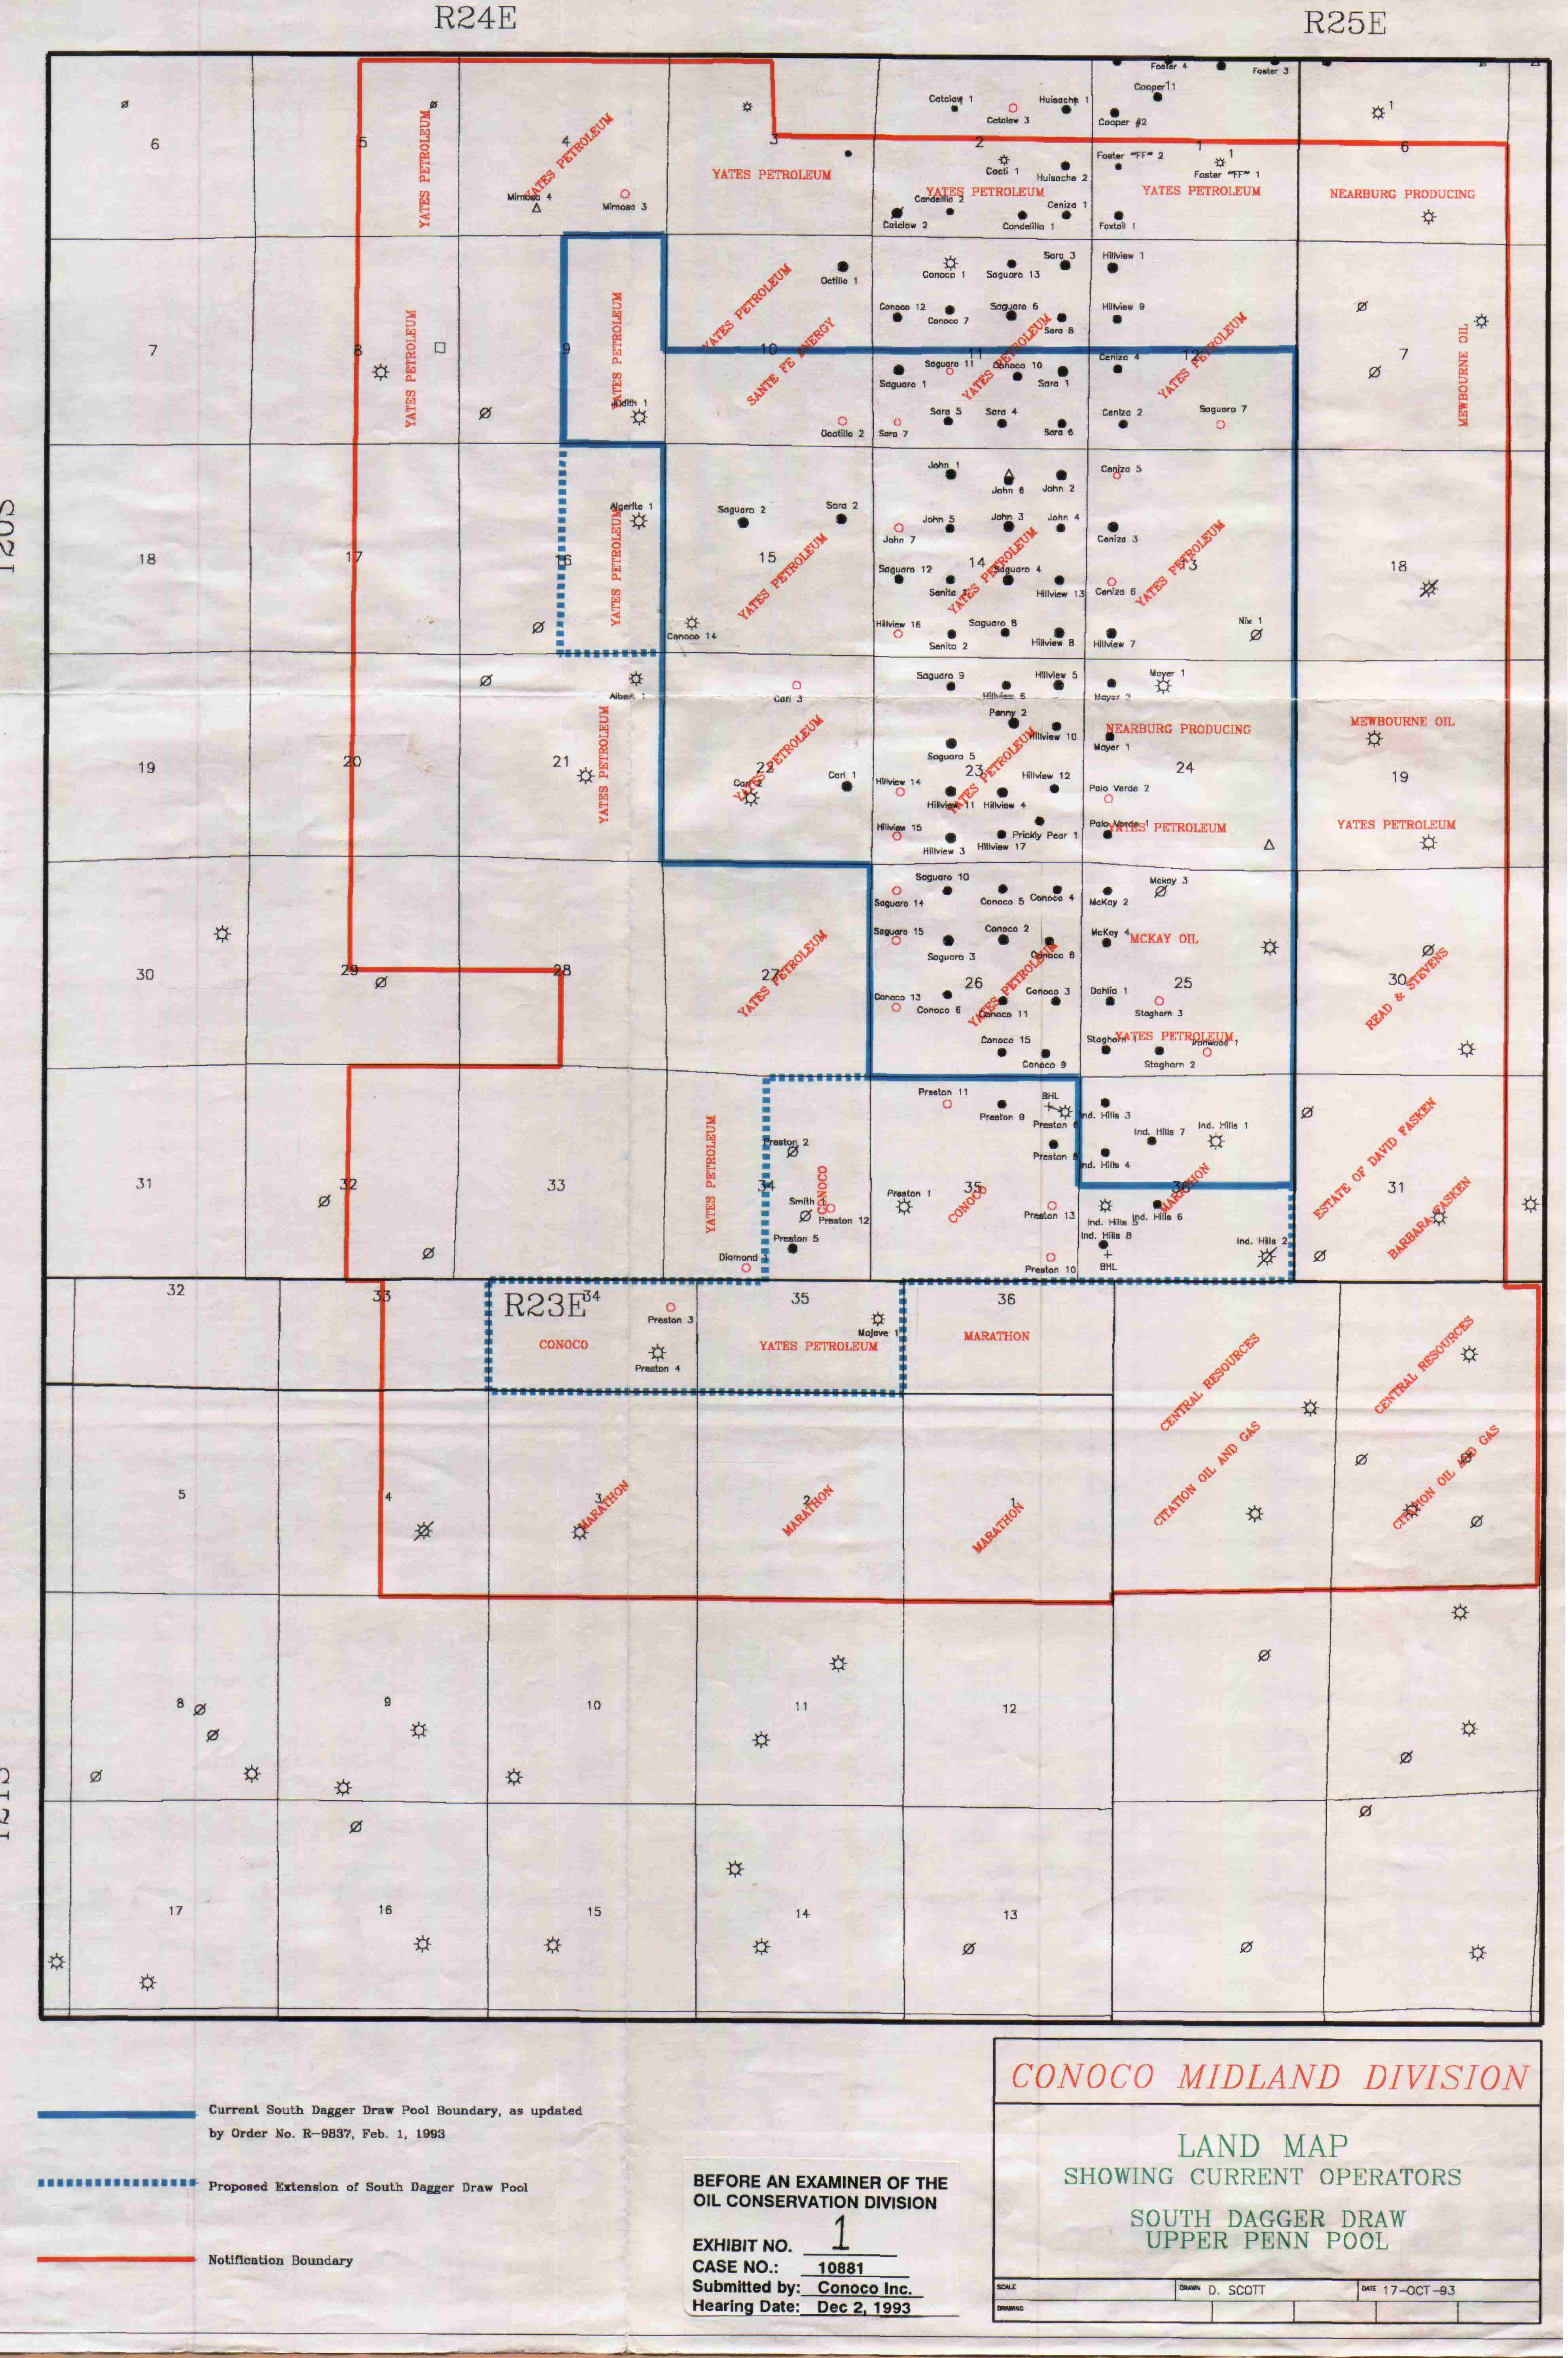 R24E
R25E
Foster 4
Foster 3
Cooper11
Catclaw 1
Huisache 1
1
Catclaw 3
Cooper #2
6
5
4
3
2
1
6
YATES PETROLEUM
YATES PETROLEUM
YATES PETROLEUM
Foster "FF" 2
1
Cacti 1
Huisache 2
Foster "FF" 1
YATES PETROLEUM
YATES PETROLEUM
NEARBURG PRODUCING
Mimosa 4
Mimosa 3
Candelilla 2
Ceniza 1
Catclaw 2
Candelilla 1
Foxtail 1
Sara 3
Hillview 1
Octillo 1
Conoco 1
Saguaro 13
YATES PETROLEUM
YATES PETROLEUM
YATES PETROLEUM
Conoco 12
Saguaro 6
Hillview 9
Conoco 7
Sara 8
SANTE FE ENERGY
YATES PETROLEUM
YATES PETROLEUM
MEWBOURNE OIL
7
8
9
10
11
12
7
Ceniza 4
Saguaro 11
Conoco 10
Saguaro 1
Sara 1
Judith 1
Sara 5
Sara 4
Ceniza 2
Saguaro 7
Ocotillo 2
Sara 7
Sara 6
John 1
Ceniza 5
John 6
John 2
T20S
Algerita 1
Saguaro 2
Sara 2
John 5
John 3
John 4
John 7
Ceniza 3
18
17
16
15
14
13
18
YATES PETROLEUM
YATES PETROLEUM
YATES PETROLEUM
YATES PETROLEUM
Saguaro 12
Saguaro 4
Hillview 13
Ceniza 6
Hillview 16
Saguaro 8
Nix 1
Conoco 14
Senita 2
Hillview 8
Hillview 7
Saguaro 9
Hillview 5
Mayer 1
Carl 3
Hillview 6
Mayer 2
Penny 2
NEARBURG PRODUCING
MEWBOURNE OIL
Hillview 10
Mayer 1
Saguaro 5
19
20
21
22
23
24
19
YATES PETROLEUM
YATES PETROLEUM
YATES PETROLEUM
Carl 2
Carl 1
Hillview 14
Hillview 12
Palo Verde 2
Hillview 11
Hillview 4
Hillview 15
Prickly Pear 1
Palo Verde 1
YATES PETROLEUM
YATES PETROLEUM
Hillview 3
Hillview 17
Saguaro 10
Mckay 3
Saguaro 14
Conoco 5
Conoco 4
McKay 2
Saguaro 15
Conoco 2
McKay 4
MCKAY OIL
Saguaro 3
Conoco 8
30
29
28
27
26
25
30
YATES PETROLEUM
YATES PETROLEUM
READ & STEVENS
Conoco 13
Conoco 3
Dahlia 1
Conoco 6
Conoco 11
Staghorn 3
Conoco 15
YATES PETROLEUM
Ironwood 1
Conoco 9
Staghorn 2
Preston 11
BHL
Preston 9
Preston 6
Ind. Hills 3
Ind. Hills 7
Ind. Hills 1
Preston 2
Preston 8
Ind. Hills 4
YATES PETROLEUM
CONOCO
CONOCO
MARATHON
ESTATE OF DAVID FASKEN
BARBARA FASKEN
31
32
33
34
35
36
31
Preston 1
Smith 1
Preston 12
Preston 13
Ind. Hills 5
Ind. Hills 6
Preston 5
Ind. Hills 8
Ind. Hills 2
Diamond 1
Preston 10
BHL
32
33
R23E
34
35
36
Preston 3
Mojave 1
CONOCO
YATES PETROLEUM
MARATHON
Preston 4
CENTRAL RESOURCES
CENTRAL RESOURCES
CITATION OIL AND GAS
CITATION OIL AND GAS
5
4
3
2
1
MARATHON
MARATHON
MARATHON
8
9
10
11
12
T21S
17
16
15
14
13
Current South Dagger Draw Pool Boundary, as updated
by Order No. R-9837, Feb. 1, 1993
Proposed Extension of South Dagger Draw Pool
Notification Boundary
BEFORE AN EXAMINER OF THE
OIL CONSERVATION DIVISION
EXHIBIT NO. 1
CASE NO.: 10881
Submitted by: Conoco Inc.
Hearing Date: Dec 2, 1993
CONOCO MIDLAND DIVISION
LAND MAP
SHOWING CURRENT OPERATORS
SOUTH DAGGER DRAW
UPPER PENN POOL
SCALE
DRAWN D. SCOTT
DATE 17-OCT-93
DRAWING